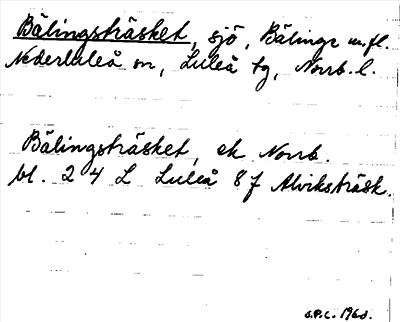 Bälingsträsket, sjö, Bälinge m.fl.
Nederluleå sn, Luleå tg, Norrb. l.
Bälingsträsket, ek Norrb.
bl. 24 L Luleå 8 f Alviksträsk.
S.P.C. 1960.